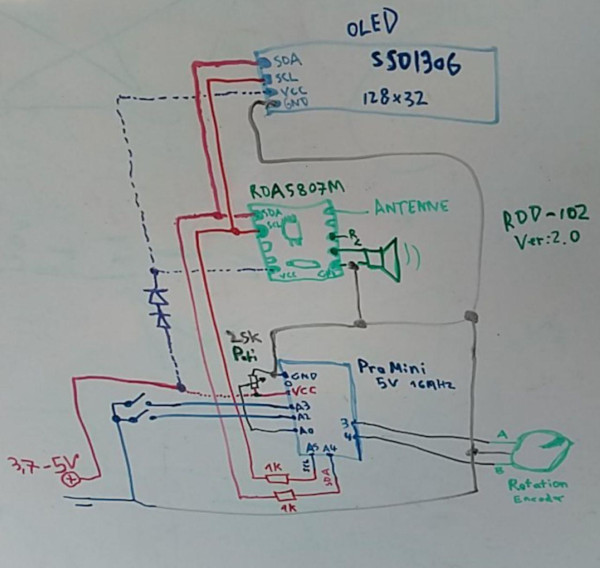 OLED
SDA
SSD1306
SCL
VCC
128x32
GND
RDA5807M
SDA
ANTENNE
SCL
R
L
RDD-102
Ver:2.0
VCC
25K
Poti
GND
Pro Mini
5V 16MHz
VCC
A3
A2
3
A0
4
A
3,7-5V
+
A5
A4
SCL
SDA
1K
1K
B
Rotation
Encoder